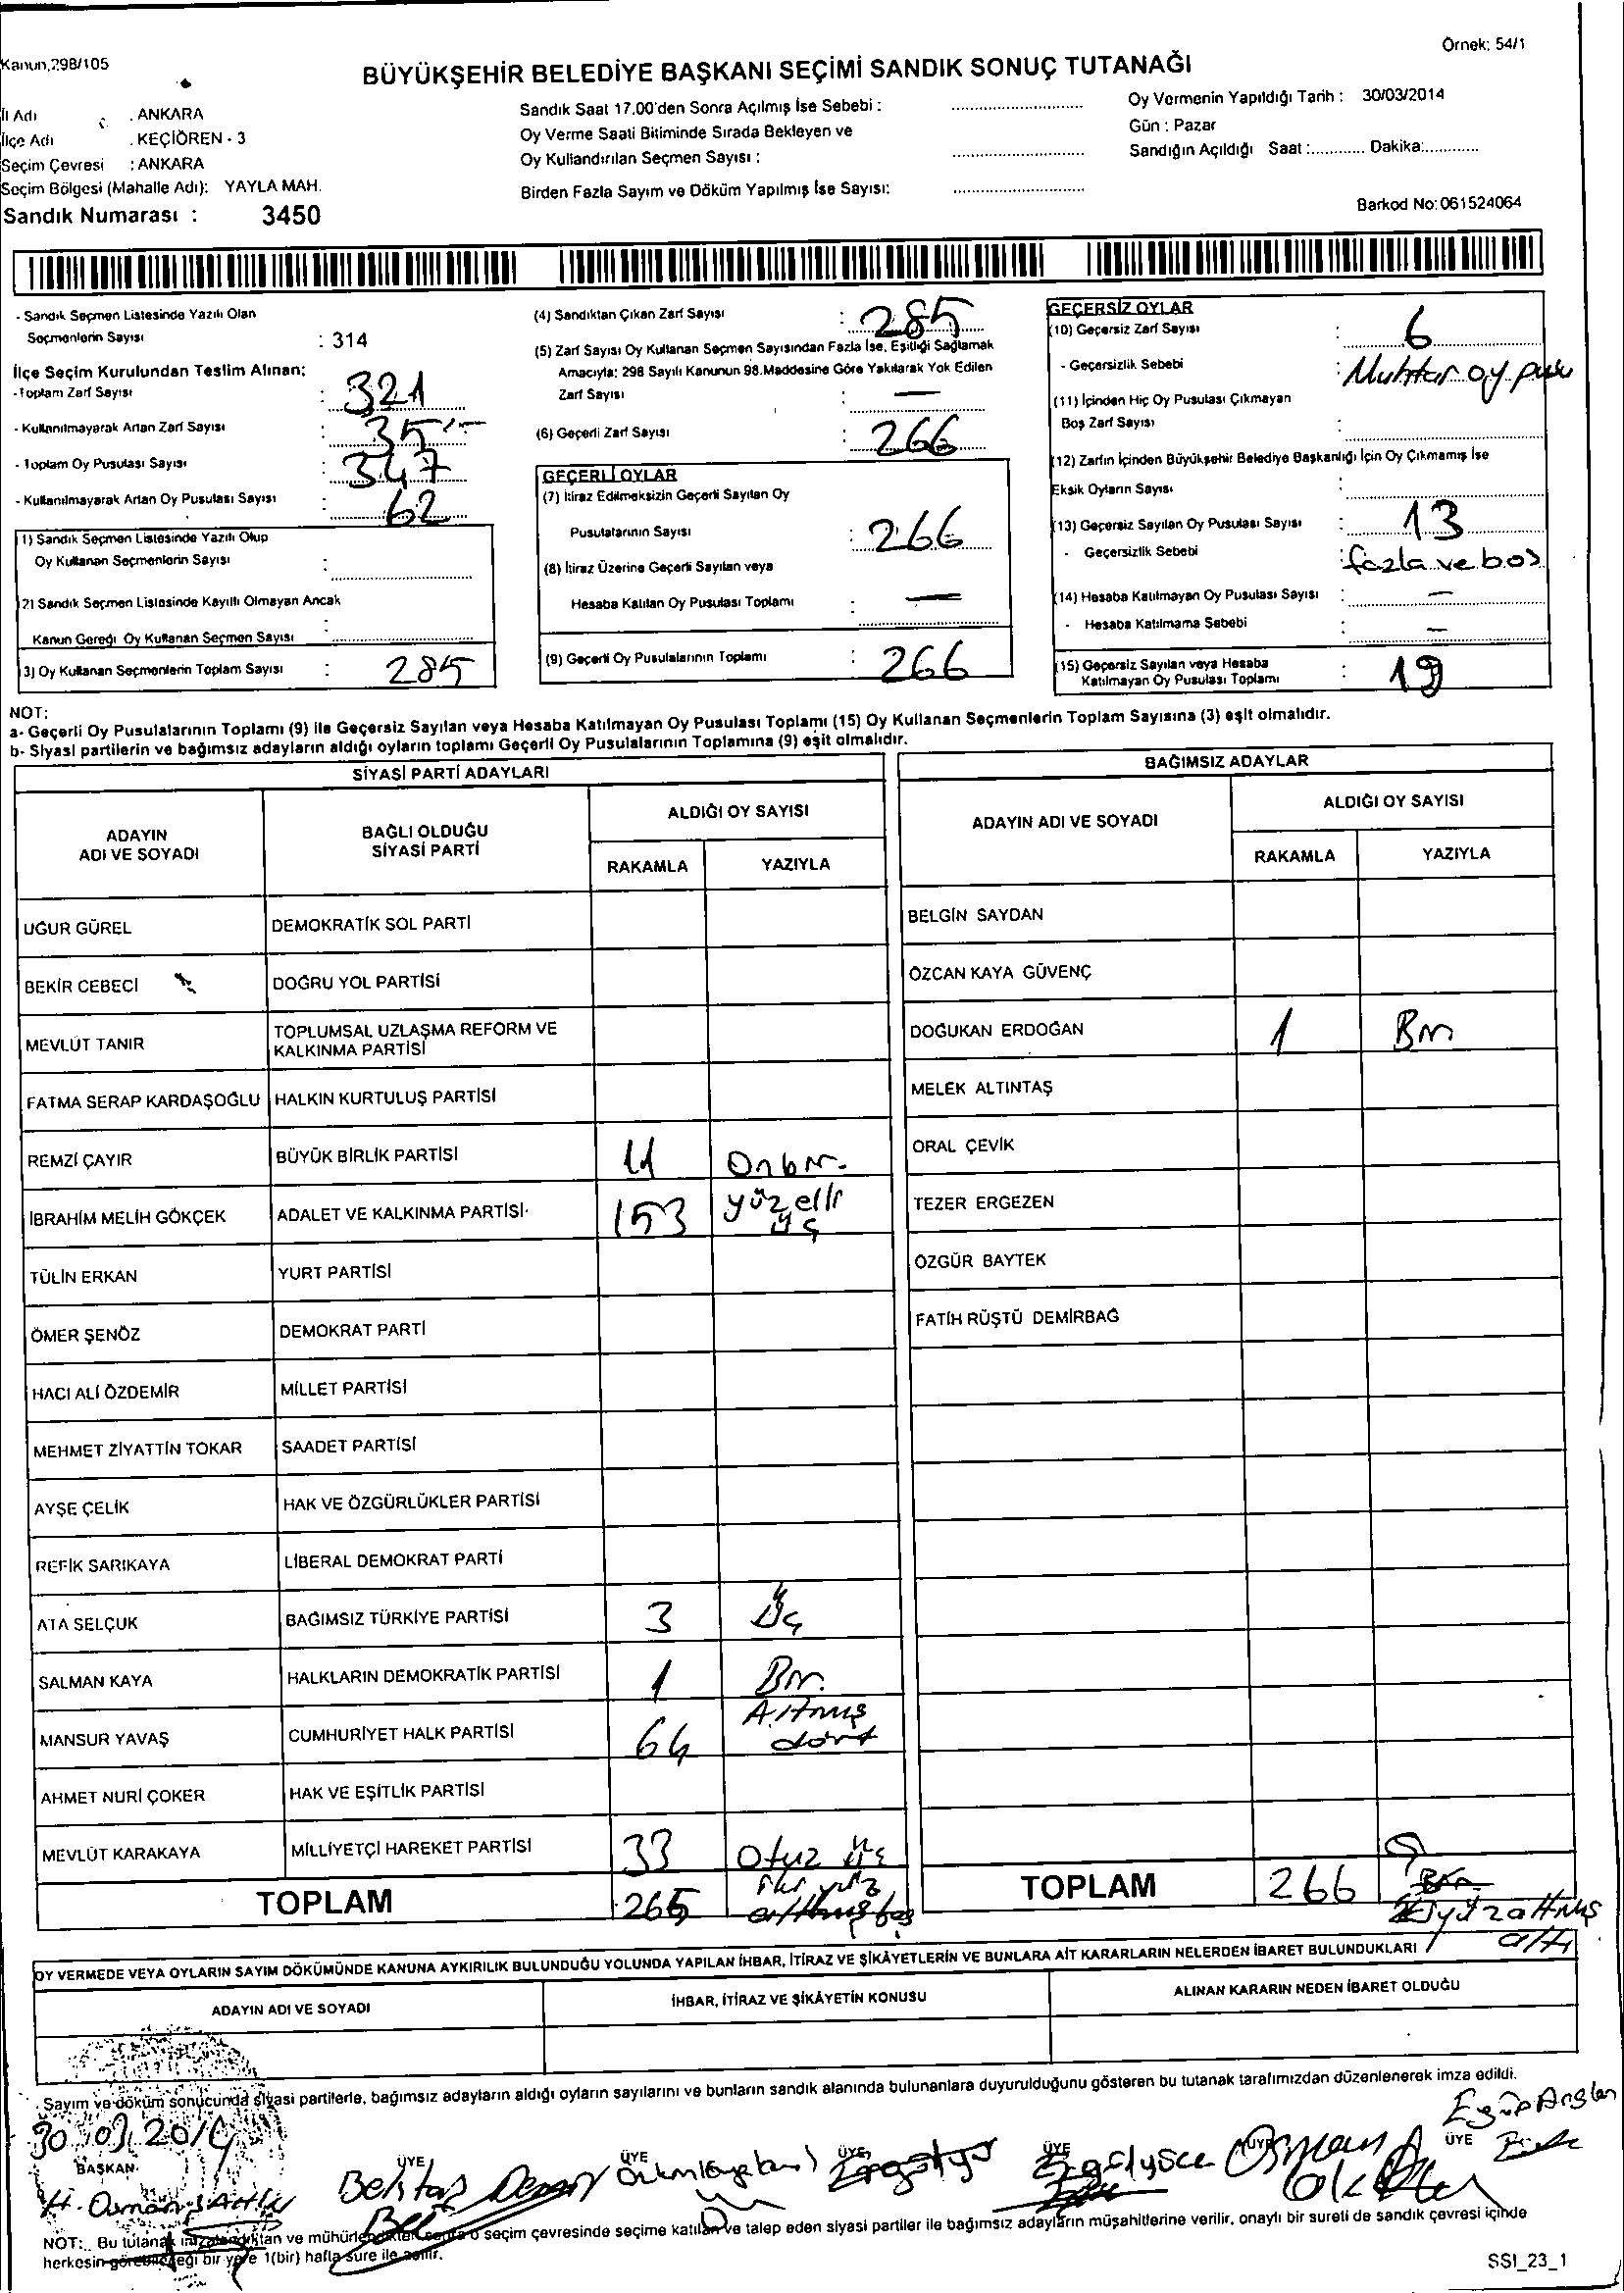 Kanun,298/105
Örnek: 54/1
BÜYÜKŞEHİR BELEDİYE BAŞKANI SEÇİMİ SANDIK SONUÇ TUTANAĞI
İl Adı : ANKARA
İlçe Adı : KEÇİÖREN - 3
Seçim Çevresi : ANKARA
Seçim Bölgesi (Mahalle Adı): YAYLA MAH.
Sandık Numarası : 3450
Sandık Saat 17.00'den Sonra Açılmış İse Sebebi :
Oy Verme Saati Bitiminde Sırada Bekleyen ve
Oy Kullandırılan Seçmen Sayısı :
Birden Fazla Sayım ve Döküm Yapılmış İse Sayısı:
Oy Vermenin Yapıldığı Tarih : 30/03/2014
Gün : Pazar
Sandığın Açıldığı Saat :............ Dakika:............
Barkod No: 061524064
- Sandık Seçmen Listesinde Yazılı Olan
Seçmenlerin Sayısı : 314
İlçe Seçim Kurulundan Teslim Alınan;
-Toplam Zarf Sayısı : 321
- Kullanılmayarak Artan Zarf Sayısı : 35
- Toplam Oy Pusulası Sayısı : 347
- Kullanılmayarak Artan Oy Pusulası Sayısı : 62
1) Sandık Seçmen Listesinde Yazılı Olup
Oy Kullanan Seçmenlerin Sayısı :
2) Sandık Seçmen Listesinde Kayıtlı Olmayan Ancak
Kanun Gereği Oy Kullanan Seçmen Sayısı :
3) Oy Kullanan Seçmenlerin Toplam Sayısı : 285
(4) Sandıktan Çıkan Zarf Sayısı : 285
(5) Zarf Sayısı Oy Kullanan Seçmen Sayısından Fazla İse, Eşitliği Sağlamak
Amacıyla; 298 Sayılı Kanunun 98.Maddesine Göre Yakılarak Yok Edilen
Zarf Sayısı : —
(6) Geçerli Zarf Sayısı : 266
GEÇERLİ OYLAR
(7) İtiraz Edilmeksizin Geçerli Sayılan Oy
Pusulalarının Sayısı : 266
(8) İtiraz Üzerine Geçerli Sayılan veya
Hesaba Katılan Oy Pusulası Toplamı : —
(9) Geçerli Oy Pusulalarının Toplamı : 266
GEÇERSİZ OYLAR
(10) Geçersiz Zarf Sayısı : 6
- Geçersizlik Sebebi : Muhtar oy pusu
(11) İçinden Hiç Oy Pusulası Çıkmayan
Boş Zarf Sayısı :
(12) Zarfın İçinden Büyükşehir Belediye Başkanlığı İçin Oy Çıkmamış İse
Eksik Oyların Sayısı :
(13) Geçersiz Sayılan Oy Pusulası Sayısı : 13
- Geçersizlik Sebebi : fazla ve boş
(14) Hesaba Katılmayan Oy Pusulası Sayısı : —
- Hesaba Katılmama Sebebi : —
(15) Geçersiz Sayılan veya Hesaba
Katılmayan Oy Pusulası Toplamı : 19
NOT:
a- Geçerli Oy Pusulalarının Toplamı (9) ile Geçersiz Sayılan veya Hesaba Katılmayan Oy Pusulası Toplamı (15) Oy Kullanan Seçmenlerin Toplam Sayısına (3) eşit olmalıdır.
b- Siyasi partilerin ve bağımsız adayların aldığı oyların toplamı Geçerli Oy Pusulalarının Toplamına (9) eşit olmalıdır.
SİYASİ PARTİ ADAYLARI
ADAYIN ADI VE SOYADI
BAĞLI OLDUĞU SİYASİ PARTİ
ALDIĞI OY SAYISI
RAKAMLA YAZIYLA
UĞUR GÜREL DEMOKRATİK SOL PARTİ
BEKİR CEBECİ DOĞRU YOL PARTİSİ
MEVLÜT TANIR TOPLUMSAL UZLAŞMA REFORM VE KALKINMA PARTİSİ
FATMA SERAP KARDAŞOĞLU HALKIN KURTULUŞ PARTİSİ
REMZİ ÇAYIR BÜYÜK BİRLİK PARTİSİ 11 Onbir
İBRAHİM MELİH GÖKÇEK ADALET VE KALKINMA PARTİSİ 153 yüzelli üç
TÜLİN ERKAN YURT PARTİSİ
ÖMER ŞENÖZ DEMOKRAT PARTİ
HACI ALİ ÖZDEMİR MİLLET PARTİSİ
MEHMET ZİYATTİN TOKAR SAADET PARTİSİ
AYŞE ÇELİK HAK VE ÖZGÜRLÜKLER PARTİSİ
REFİK SARIKAYA LİBERAL DEMOKRAT PARTİ
ATA SELÇUK BAĞIMSIZ TÜRKİYE PARTİSİ 3 Üç
SALMAN KAYA HALKLARIN DEMOKRATİK PARTİSİ 1 Bir.
MANSUR YAVAŞ CUMHURİYET HALK PARTİSİ 64 Altmış dört
AHMET NURİ ÇOKER HAK VE EŞİTLİK PARTİSİ
MEVLÜT KARAKAYA MİLLİYETÇİ HAREKET PARTİSİ 33 Otuz üç
TOPLAM 265 iki yüz altmış beş
BAĞIMSIZ ADAYLAR
ADAYIN ADI VE SOYADI
ALDIĞI OY SAYISI
RAKAMLA YAZIYLA
BELGİN SAYDAN
ÖZCAN KAYA GÜVENÇ
DOĞUKAN ERDOĞAN 1 Bir
MELEK ALTINTAŞ
ORAL ÇEVİK
TEZER ERGEZEN
ÖZGÜR BAYTEK
FATİH RÜŞTÜ DEMİRBAĞ
TOPLAM 266 ikiyüzaltmış altı
OY VERMEDE VEYA OYLARIN SAYIM DÖKÜMÜNDE KANUNA AYKIRILIK BULUNDUĞU YOLUNDA YAPILAN İHBAR, İTİRAZ VE ŞİKÂYETLERİN VE BUNLARA AİT KARARLARIN NELERDEN İBARET BULUNDUKLARI
ADAYIN ADI VE SOYADI
İHBAR, İTİRAZ VE ŞİKÂYETİN KONUSU
ALINAN KARARIN NEDEN İBARET OLDUĞU
Sayım ve döküm sonucunda siyasi partilerle, bağımsız adayların aldığı oyların sayılarını ve bunların sandık alanında bulunanlara duyurulduğunu gösteren bu tutanak tarafımızdan düzenlenerek imza edildi.
30.03.2014
BAŞKAN ÜYE ÜYE ÜYE ÜYE ÜYE ÜYE
H. Osman
Bektaş
Osman
Eyüp Arslan
NOT:. Bu tutanak imzalandıktan ve mühürlendikten sonra o seçim çevresinde seçime katılan ve talep eden siyasi partiler ile bağımsız adayların müşahitlerine verilir, onaylı bir sureti de sandık çevresi içinde
herkesin görebileceği bir yere 1(bir) hafta süre ile asılır.
SSI_23_1